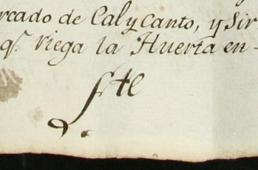 rcado de Cal y Canto, y Sir
q.e riega la Huerta en-
fte